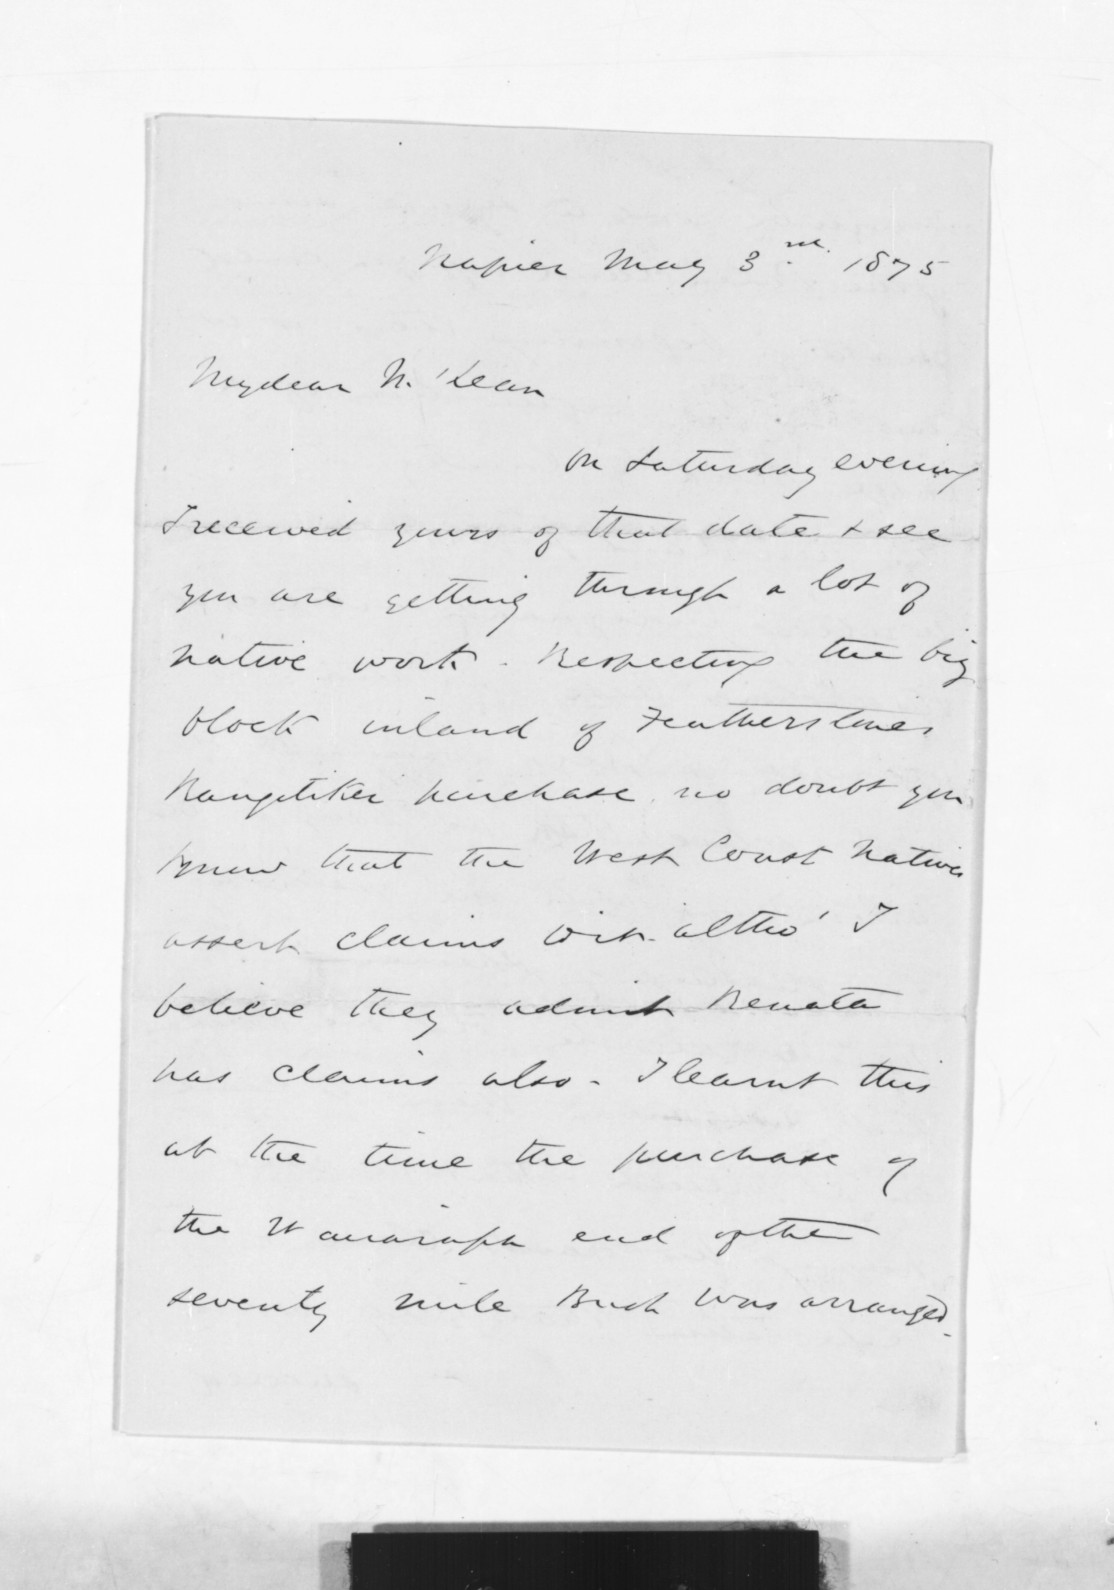 Napier May 3rd. 1875
My dear McLean
On Saturday evening
I received yours of that date & see
you are getting through a lot of
native work. Respecting the big
block inland of Featherstones
Rangitikei purchase, no doubt you
know that the West Coast Natives
assert claims to it. altho' I
believe they admit Renata
has claims also. I learnt this
at the time the purchase of
the Wairarapa end of the
seventy mile Bush was arranged.